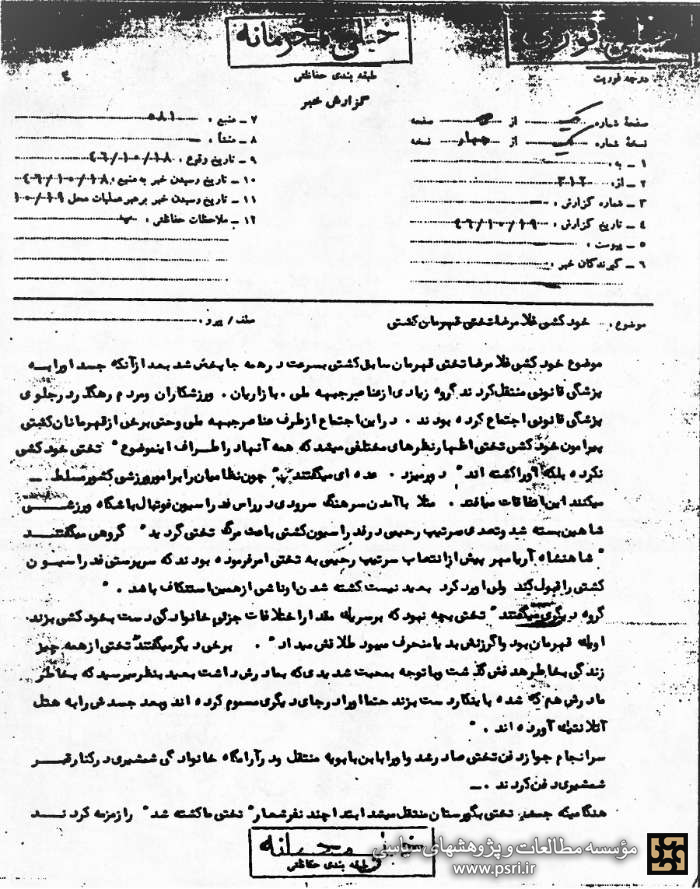 خیلی محرمانه
طبقه بندی حفاظتی
گزارش خبر
خیلی فوری
درجه فوریت
صفحهٔ شماره یک از صفحه
نسخهٔ شماره از چهار نسخه
۱ ــ به :
۲ ــ از: ۳۱۲
۳ ــ شماره گزارش :
۴ ــ تاریخ گزارش : ۴۶/۱۰/۱۹
۵ ــ پیوست :
۶ ــ گیرندگان خبر :
۷ ــ منبع : ۵۸۱
۸ ــ منشأ :
۹ ــ تاریخ وقوع : ۴۶/۱۰/۱۸
۱۰ ــ تاریخ رسیدن خبر به منبع : ۴۶/۱۰/۱۸
۱۱ ــ تاریخ رسیدن خبر برهبر عملیات محل ۱۰/۱۹
۱۲ ــ ملاحظات حفاظتی :
موضوع : خود کشی غلامرضا تختی قهرمان کشتی
عطف / پیرو :
موضوع خود کشی غلامرضا تختی قهرمان سابق کشتی بسرعت در همه جا پخش شد بعد از آنکه جسد او را به
پزشگی قانونی منتقل کردند گروه زیادی از عناصر جبهه ملی . بازاریان . ورزشکاران و مردم رهگذر در جلوی
پزشگی قانونی اجتماع کرده بودند . در این اجتماع از طرف عناصر جبهه ملی و حتی برخی از قهرمانان کشتی
پیرامون خود کشی تختی اظهار نظرهای مختلفی میشد که همه آنها در اطراف این موضوع " تختی خود کشی
نکرده بلکه او را کشته اند " دور میزد . عده ای میگفتند " چون نظامیان را بر امور ورزشی کشور مسلط ــ
میکنند این اتفاقات میافتد . مثلا با آمدن سرهنگ سرودی در راس فدراسیون فوتبال باشگاه ورزشی
شاهین بسته شد و تصدی سرتیپ رحیمی در فدراسیون کشتی باعث مرگ تختی گردید " گروهی میگفتند
" شاهنشاه آریامهر پیش از انتصاب سرتیپ رحیمی به تختی امر فرموده بودند که سرپرستی فدراسیون
کشتی را قبول کند ولی او رد کرد بعید نیست کشته شدن او ناشی از همین استنکاف باشد . "
گروه دیگری میگفتند " تختی بچه نبود که بر سر یک مقدار اختلافات جزئی خانوادگی دست بخود کشی بزند
او یک قهرمان بود و اگر زنش بد یا منحرف میبود طلاقش میداد " . برخی دیگر میگفتند " تختی از همه چیز
زندگی بخاطر هدفش گذشت و با توجه بمحبت شدیدی که بمادرش داشت بعید بنظر میرسید که بخاطر
مادرش هم که شده باینکار دست بزند حتما او را در جای دیگری مسموم کرده اند و بعد جسدش را به هتل
آتلانتیک آورده اند . "
سرانجام جواز دفن تختی صادر شد و او را بابن بابویه منتقل و در آرامگاه خانوادگی شمشیری در کنار قبر
شمشیری دفن کردند . ــ
هنگامیکه جسد تختی بگورستان منتقل میشد ابتدا چند نفر شعار " تختی ما کشته شد " را زمزمه کردند
خیلی محرمانه
طبقه بندی حفاظتی
مؤسسه مطالعات و پژوهشهای سیاسی
www.psri.ir